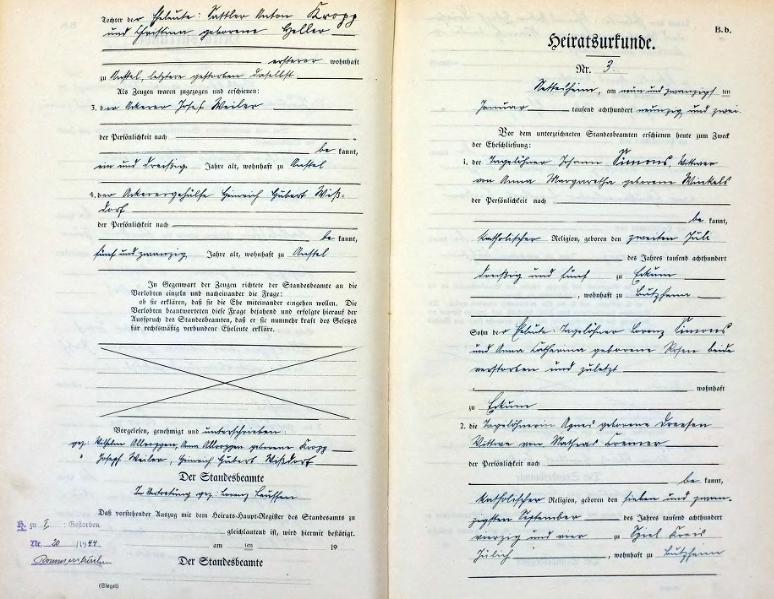 Tochter der Eheleute: Sattler Anton Kropp
und Christian geborene Heller
ersterer wohnhaft
zu Anstel, letztere gestorben daselbst
Als Zeugen waren zugezogen und erschienen:
3. der Ackerer Josef Weiler
der Persönlichkeit nach
be kannt,
ein und dreißig Jahre alt, wohnhaft zu Anstel
4. der Ackerergehülfe Heinrich Hubert Wiß-
dorf
der Persönlichkeit nach
be kannt,
fünf und zwanzig Jahre alt, wohnhaft zu Anstel
In Gegenwart der Zeugen richtete der Standesbeamte an die
Verlobten einzeln und nacheinander die Frage:
ob sie erklären, daß sie die Ehe miteinander eingehen wollen. Die
Verlobten beantworteten diese Frage bejahend und erfolgte hierauf der
Ausspruch des Standesbeamten, daß er sie nunmehr kraft des Gesetzes
für rechtmäßig verbundene Eheleute erkläre.
Vorgelesen, genehmigt und unterschrieben:
gez. Wilhelm Anna geborene Kropp
" Joseph Weiler, Heinrich Hubert Wißdorf
Der Standesbeamte
In Vertretung gez. Lorenz
Daß vorstehender Auszug mit dem Heirats-Haupt-Register des Standesamts zu
gleichlautend ist, wird hiermit bestätigt.
am ten 19
Der Standesbeamte
(Siegel)
H. zu 2 : Gestorben
Nr. 20 /1944
B.b.
Heiratsurkunde.
Nr. 3
Nettesheim, am neun und zwanzigsten
Januar tausend achthundert neunzig und zwei
Vor dem unterzeichneten Standesbeamten erschienen heute zum Zweck
der Eheschließung:
1. der Tagelöhner Johann Simons, Wittwer
von Anna Margaretha geborene Winkels
der Persönlichkeit nach
be kannt,
katholischer Religion, geboren den zweiten Juli
des Jahres tausend achthundert
dreißig und fünf zu Eckum
, wohnhaft zu Butzheim
Sohn der Eheleute: Tagelöhner Lorenz Simons
und Anna Catharina geborene Rosen beide
verstorben und zuletzt
wohnhaft
zu Eckum
2. die Tagelöhnerin Agnes geborene Dreesen
Wittwe von Mathias Cremer
der Persönlichkeit nach
be kannt,
katholischer Religion, geboren den sieben und zwan-
zigsten September des Jahres tausend achthundert
vierzig und vier zu Spiel Kreis
Jülich , wohnhaft zu Butzheim